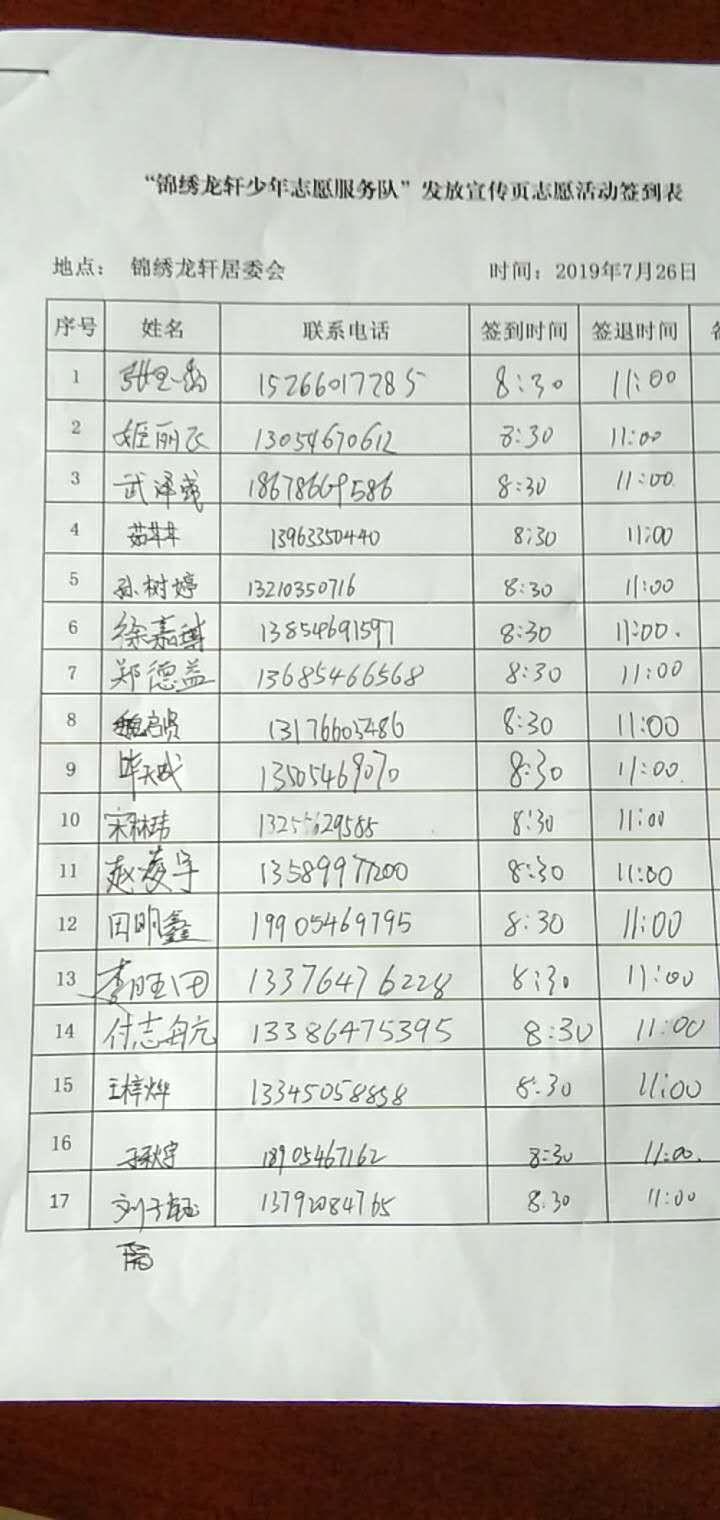 “锦绣龙轩少年志愿服务队”发放宣传页志愿活动签到表
地点： 锦绣龙轩居委会 时间：2019年7月26日
序号 姓名 联系电话 签到时间 签退时间
1 15266017285 8:30 11:00
2 姬丽飞 13054670612 8:30 11:00
3 武泽彧 18678669586 8:30 11:00
4 茹苹苹 13963350440 8:30 11:00
5 孙树婷 13210350716 8:30 11:00
6 徐嘉博 13854691597 8:30 11:00.
7 郑德益 13685466568 8:30 11:00
8 魏启贤 13176605486 8:30 11:00
9 毕天成 13505469070 8:30 11:00
10 宋林玮 8:30 11:00
11 赵凌宇 13589977200 8:30 11:00
12 田明鑫 19905469795 8:30 11:00
13 13376476228 8:30 11:00
14 付志航 13386475395 8:30 11:00
15 王梓烨 13345058858 8:30 11:00
16 18905467162 8:30 11:00.
17 刘子 13792084765 8:30 11:00